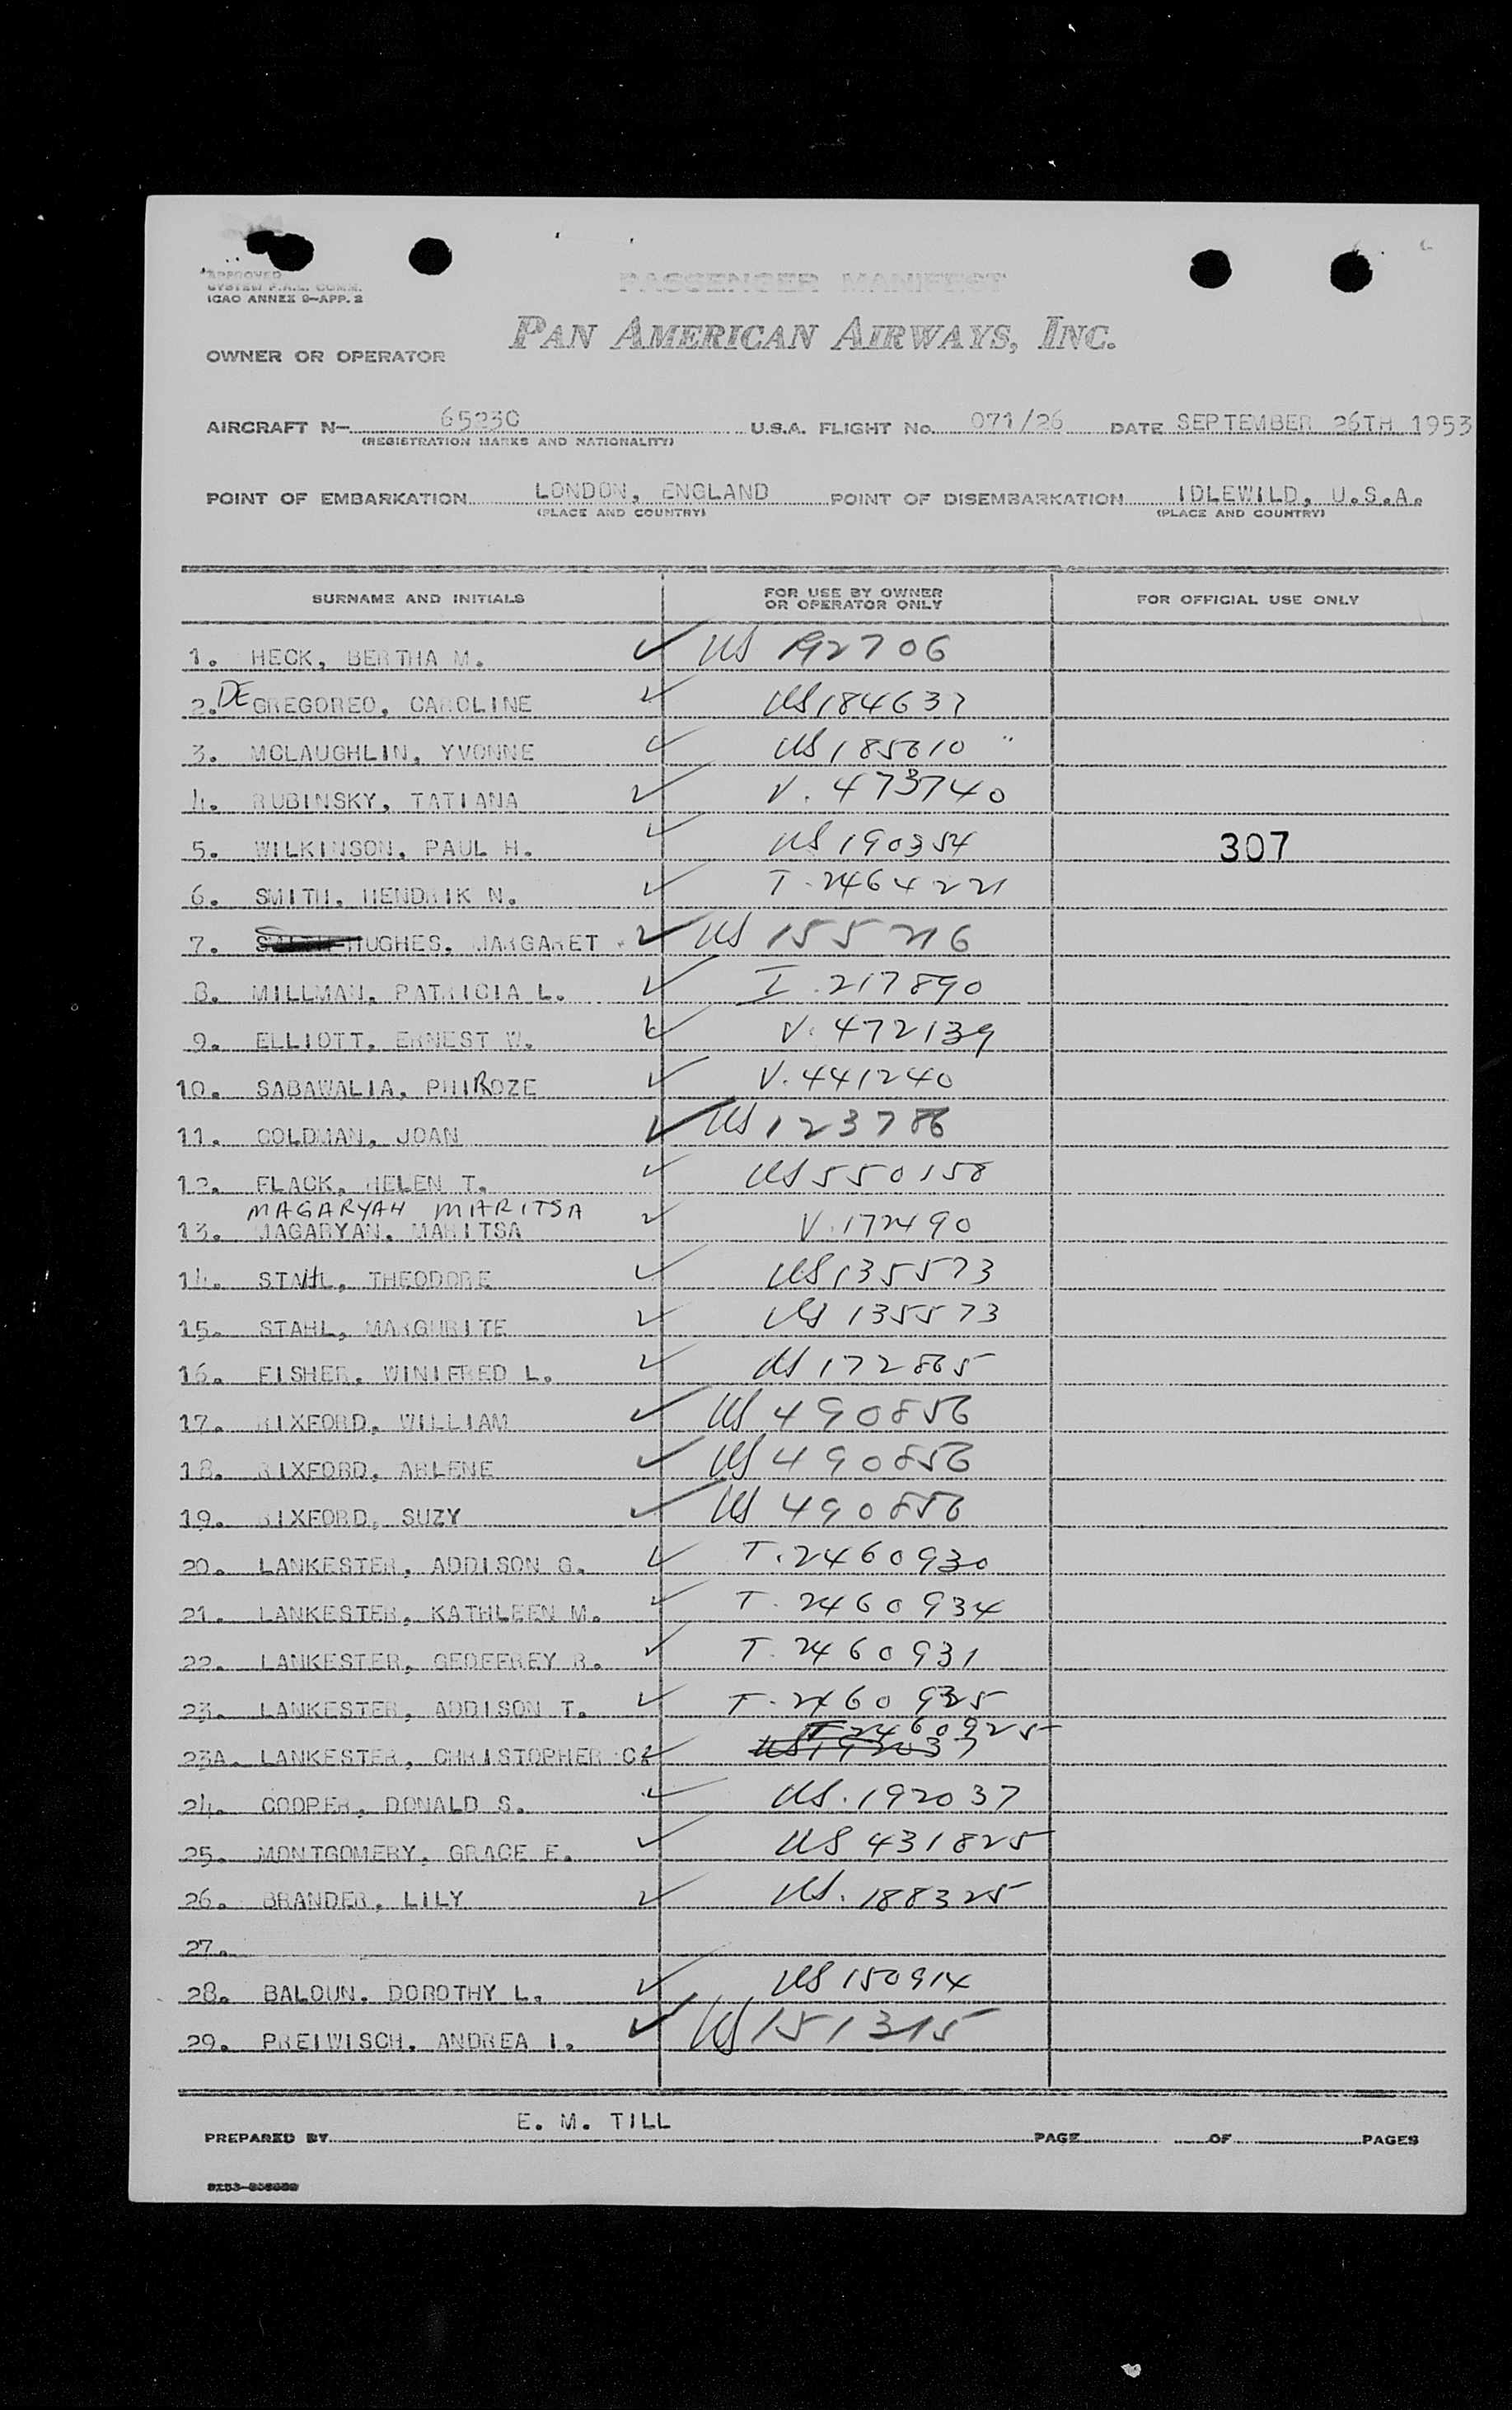 APPROVED
SYSTEM P.A.L. COMM.
ICAO ANNEX 9—APP. 2
PASSENGER MANIFEST
PAN AMERICAN AIRWAYS, INC.
OWNER OR OPERATOR
AIRCRAFT N— 6523C U.S.A. FLIGHT No. 071/26 DATE SEPTEMBER 26TH 1953
(REGISTRATION MARKS AND NATIONALITY)
POINT OF EMBARKATION LONDON, ENGLAND POINT OF DISEMBARKATION IDLEWILD, U.S.A.
(PLACE AND COUNTRY) (PLACE AND COUNTRY)
SURNAME AND INITIALS FOR USE BY OWNER OR OPERATOR ONLY FOR OFFICIAL USE ONLY
1. HECK, BERTHA M. ✓ US 192706
2. DE GREGOREO, CAROLINE ✓ US 184637
3. MCLAUGHLIN, YVONNE ✓ US 185610 "
4. RUBINSKY, TATIANA ✓ V. 473740
5. WILKINSON, PAUL H. ✓ US 190354 307
6. SMITH, HENDRIK N. ✓ T. 2464221
7. HUGHES, MARGARET ✓ US 155216
8. MILLMAN, PATRICIA L. ✓ I. 217890
9. ELLIOTT, ERNEST W. ✓ V. 472139
10. SABAWALIA, PHIROZE ✓ V. 441240
11. GOLDMAN, JOAN ✓ US 123786
12. FLACK, HELEN T. ✓ US 550158
MAGARYAH MARITSA
13. MAGARYAN, MARITSA ✓ V. 172490
14. STAHL, THEODORE ✓ US 135573
15. STAHL, MARGURITE ✓ US 135573
16. FISHER, WINIFRED L. ✓ US 172865
17. RIXFORD, WILLIAM ✓ US 490856
18. RIXFORD, ARLENE ✓ US 490856
19. RIXFORD, SUZY ✓ US 490856
20. LANKESTER, ADDISON G. ✓ T. 2460930
21. LANKESTER, KATHLEEN M. ✓ T. 2460934
22. LANKESTER, GEOFFREY R. ✓ T. 2460931
23. LANKESTER, ADDISON T. ✓ T. 2460925
T2460925
23A. LANKESTER, CHRISTOPHER C. ✓ US 192037
24. COOPER, DONALD S. ✓ US. 192037
25. MONTGOMERY, GRACE E. ✓ US 431825
26. BRANDER, LILY ✓ US. 188325
27.
28. BALOUN, DOROTHY L. ✓ US 150914
29. PREIWISCH, ANDREA I. ✓ US 151315
PREPARED BY E. M. TILL PAGE OF PAGES